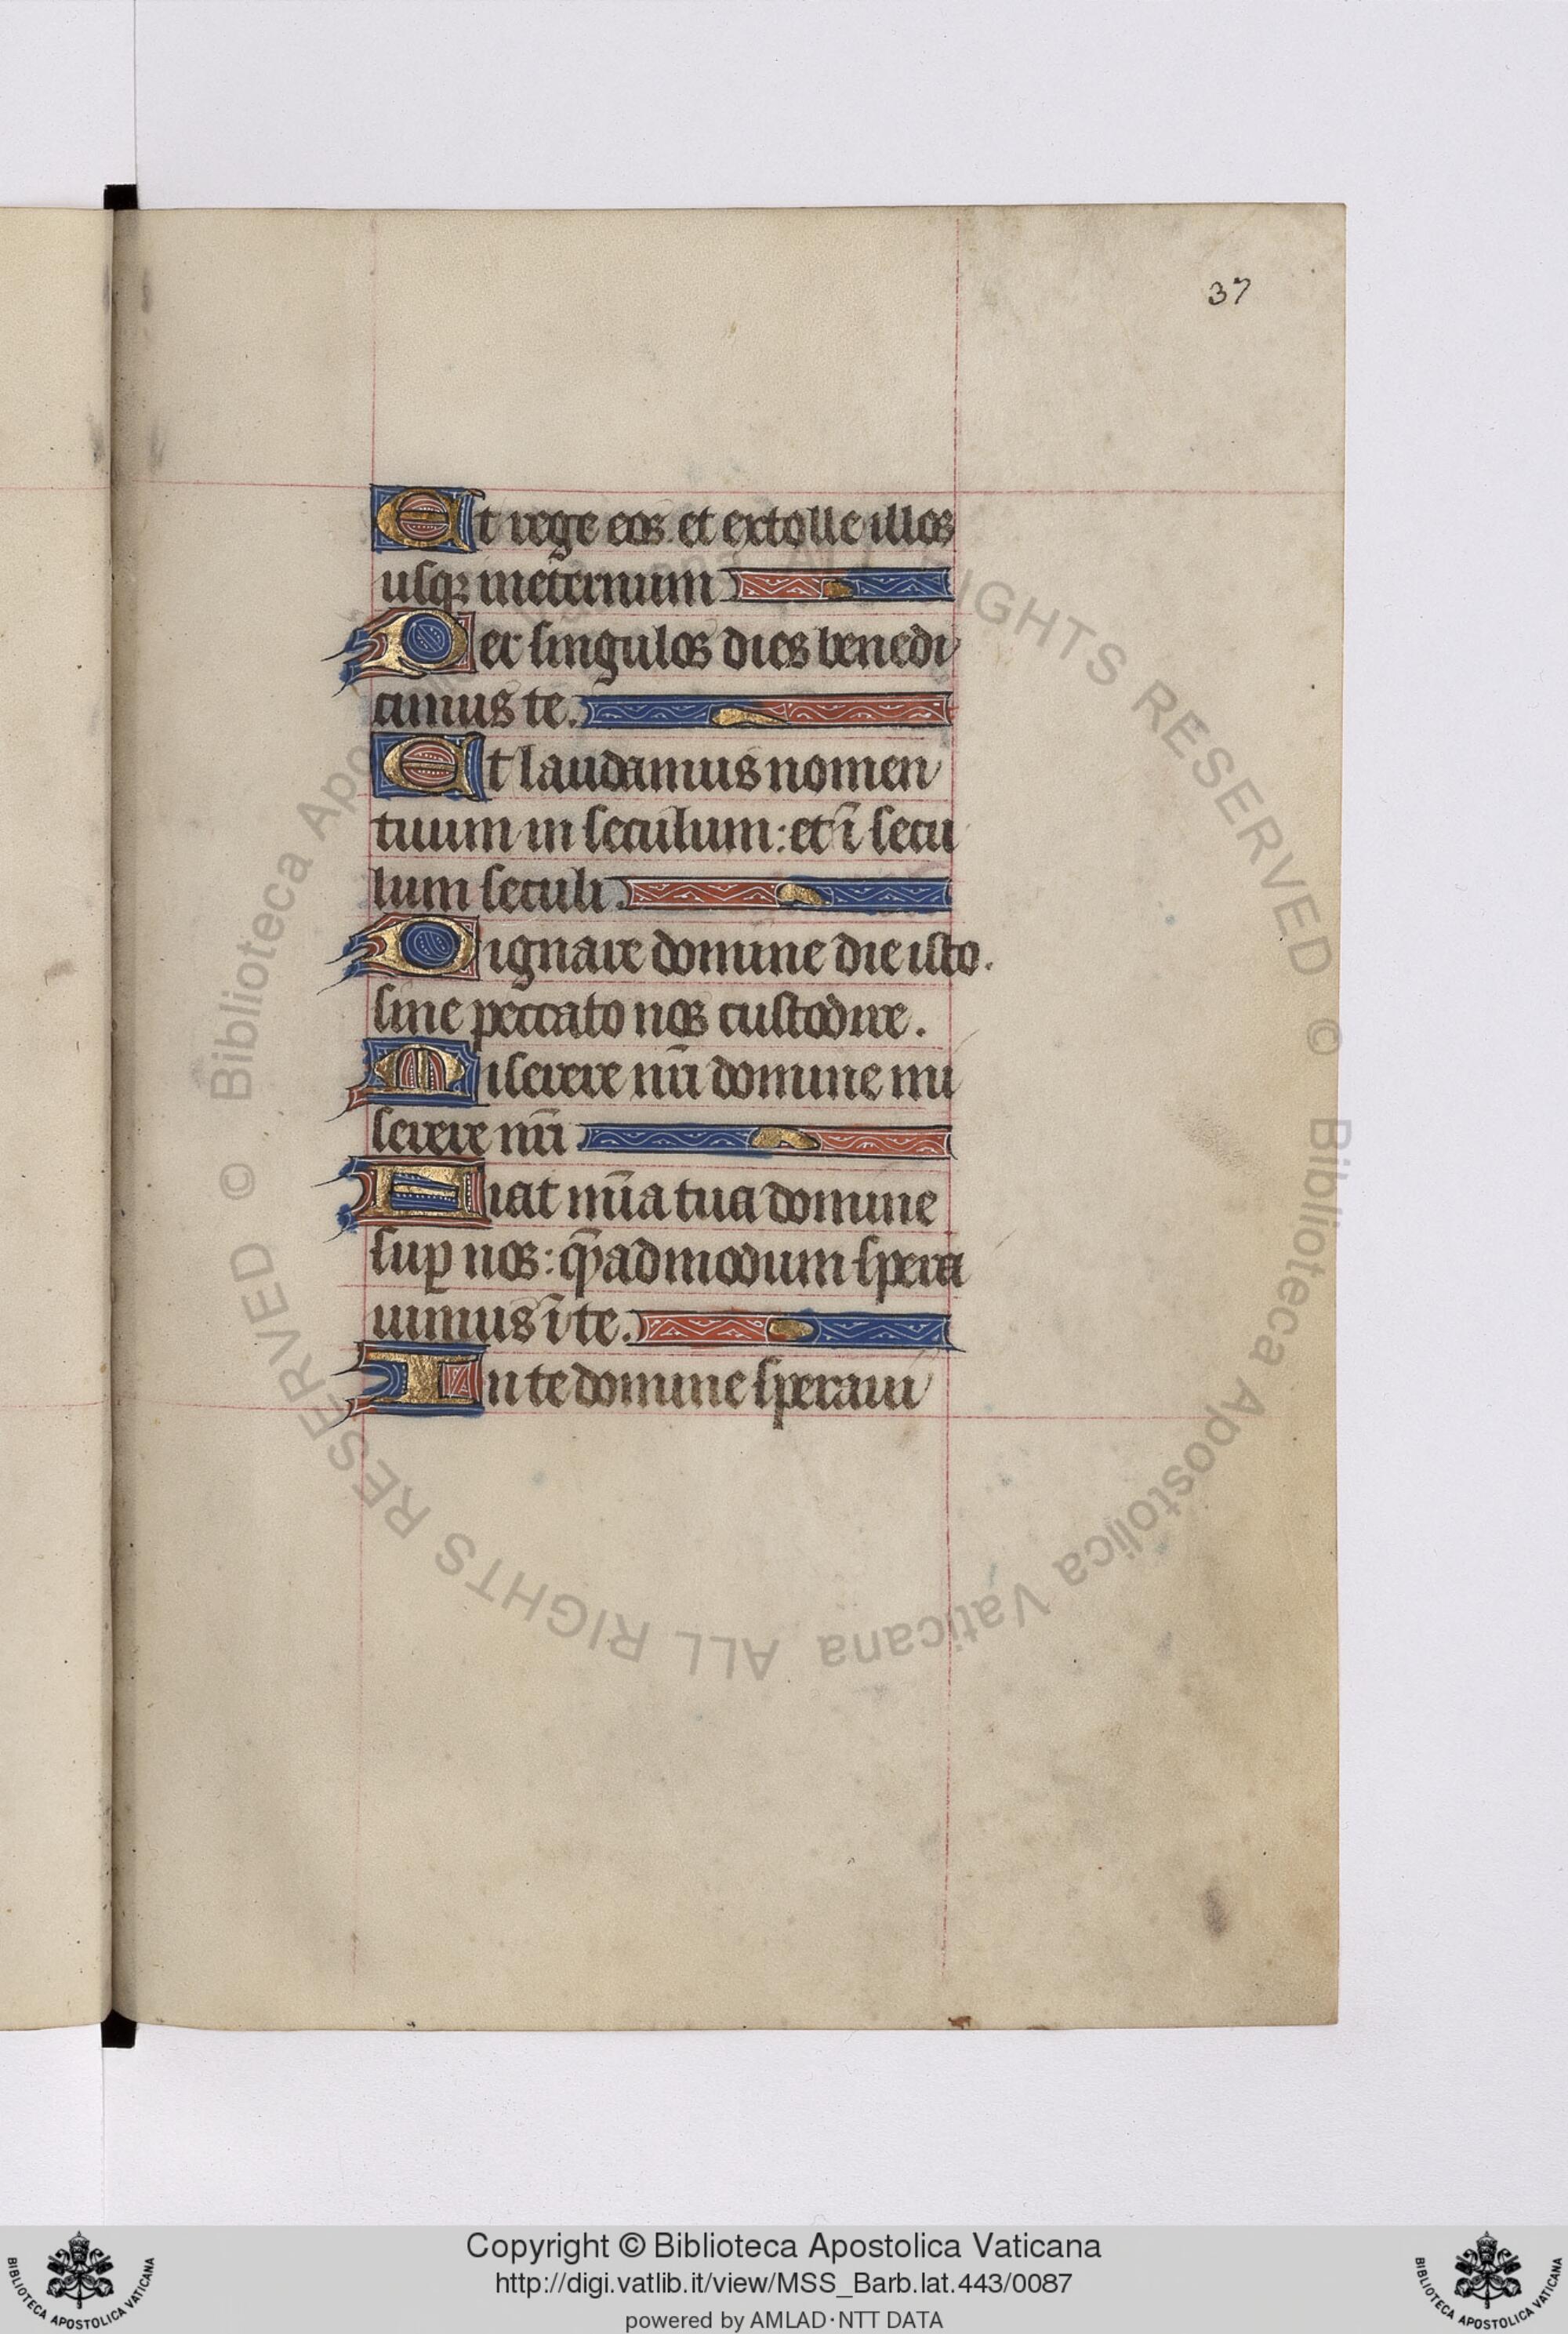 37
Et rege eos. et extolle illos
usq; inet̄ernum
Per singulos dies benedi
cimus te.
Et laudamus nomen
tuum in seculum: et ī secu
lum seculi.
Dignare domine die isto.
sine peccato nos custodire.
Miserere nr̄i domine mi
serere nr̄i
Fiat mīa tua domine
suꝑ nos: qȝ̄admodum spera
uimus ī te.
In te domine speraui
© Biblioteca Apostolica Vaticana ALL RIGHTS RESERVED © Biblioteca Apostolica Vaticana ALL RIGHTS RESERVED
Copyright © Biblioteca Apostolica Vaticana
http://digi.vatlib.it/view/MSS_Barb.lat.443/0087
powered by AMLAD·NTT DATA
BIBLIOTECA APOSTOLICA VATICANA
BIBLIOTECA APOSTOLICA VATICANA